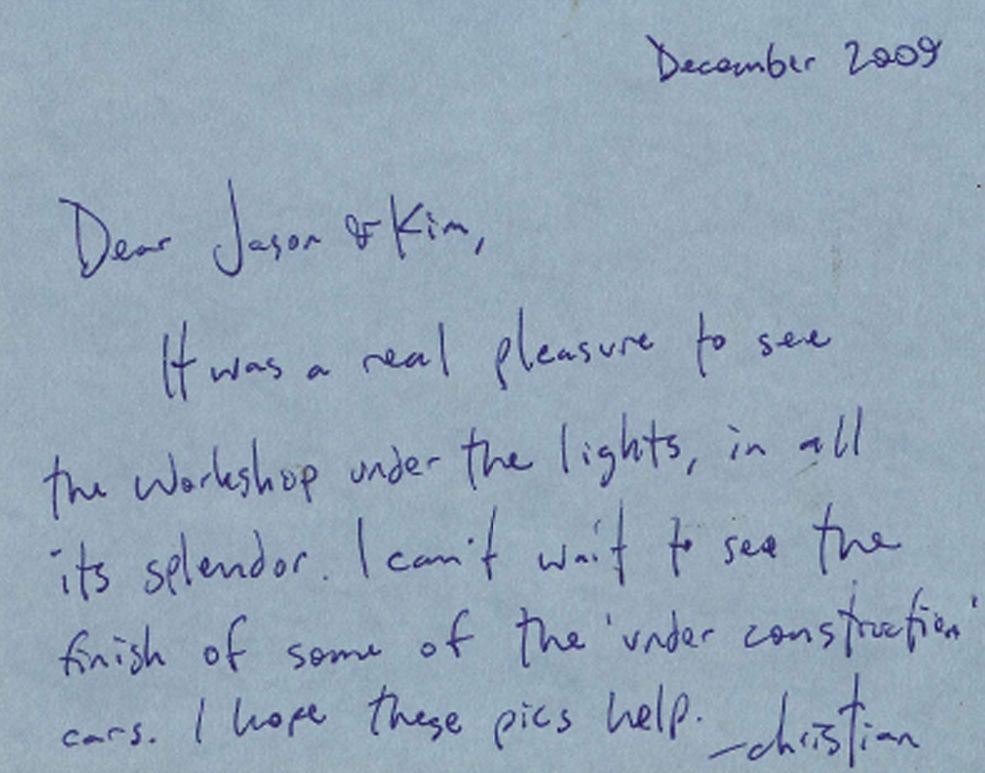 December 2009
Dear Jason & Kim,
It was a real pleasure to see
the workshop under the lights, in all
its splendor. I can't wait to see the
finish of some of the 'under construction'
cars. I hope these pics help. -christian